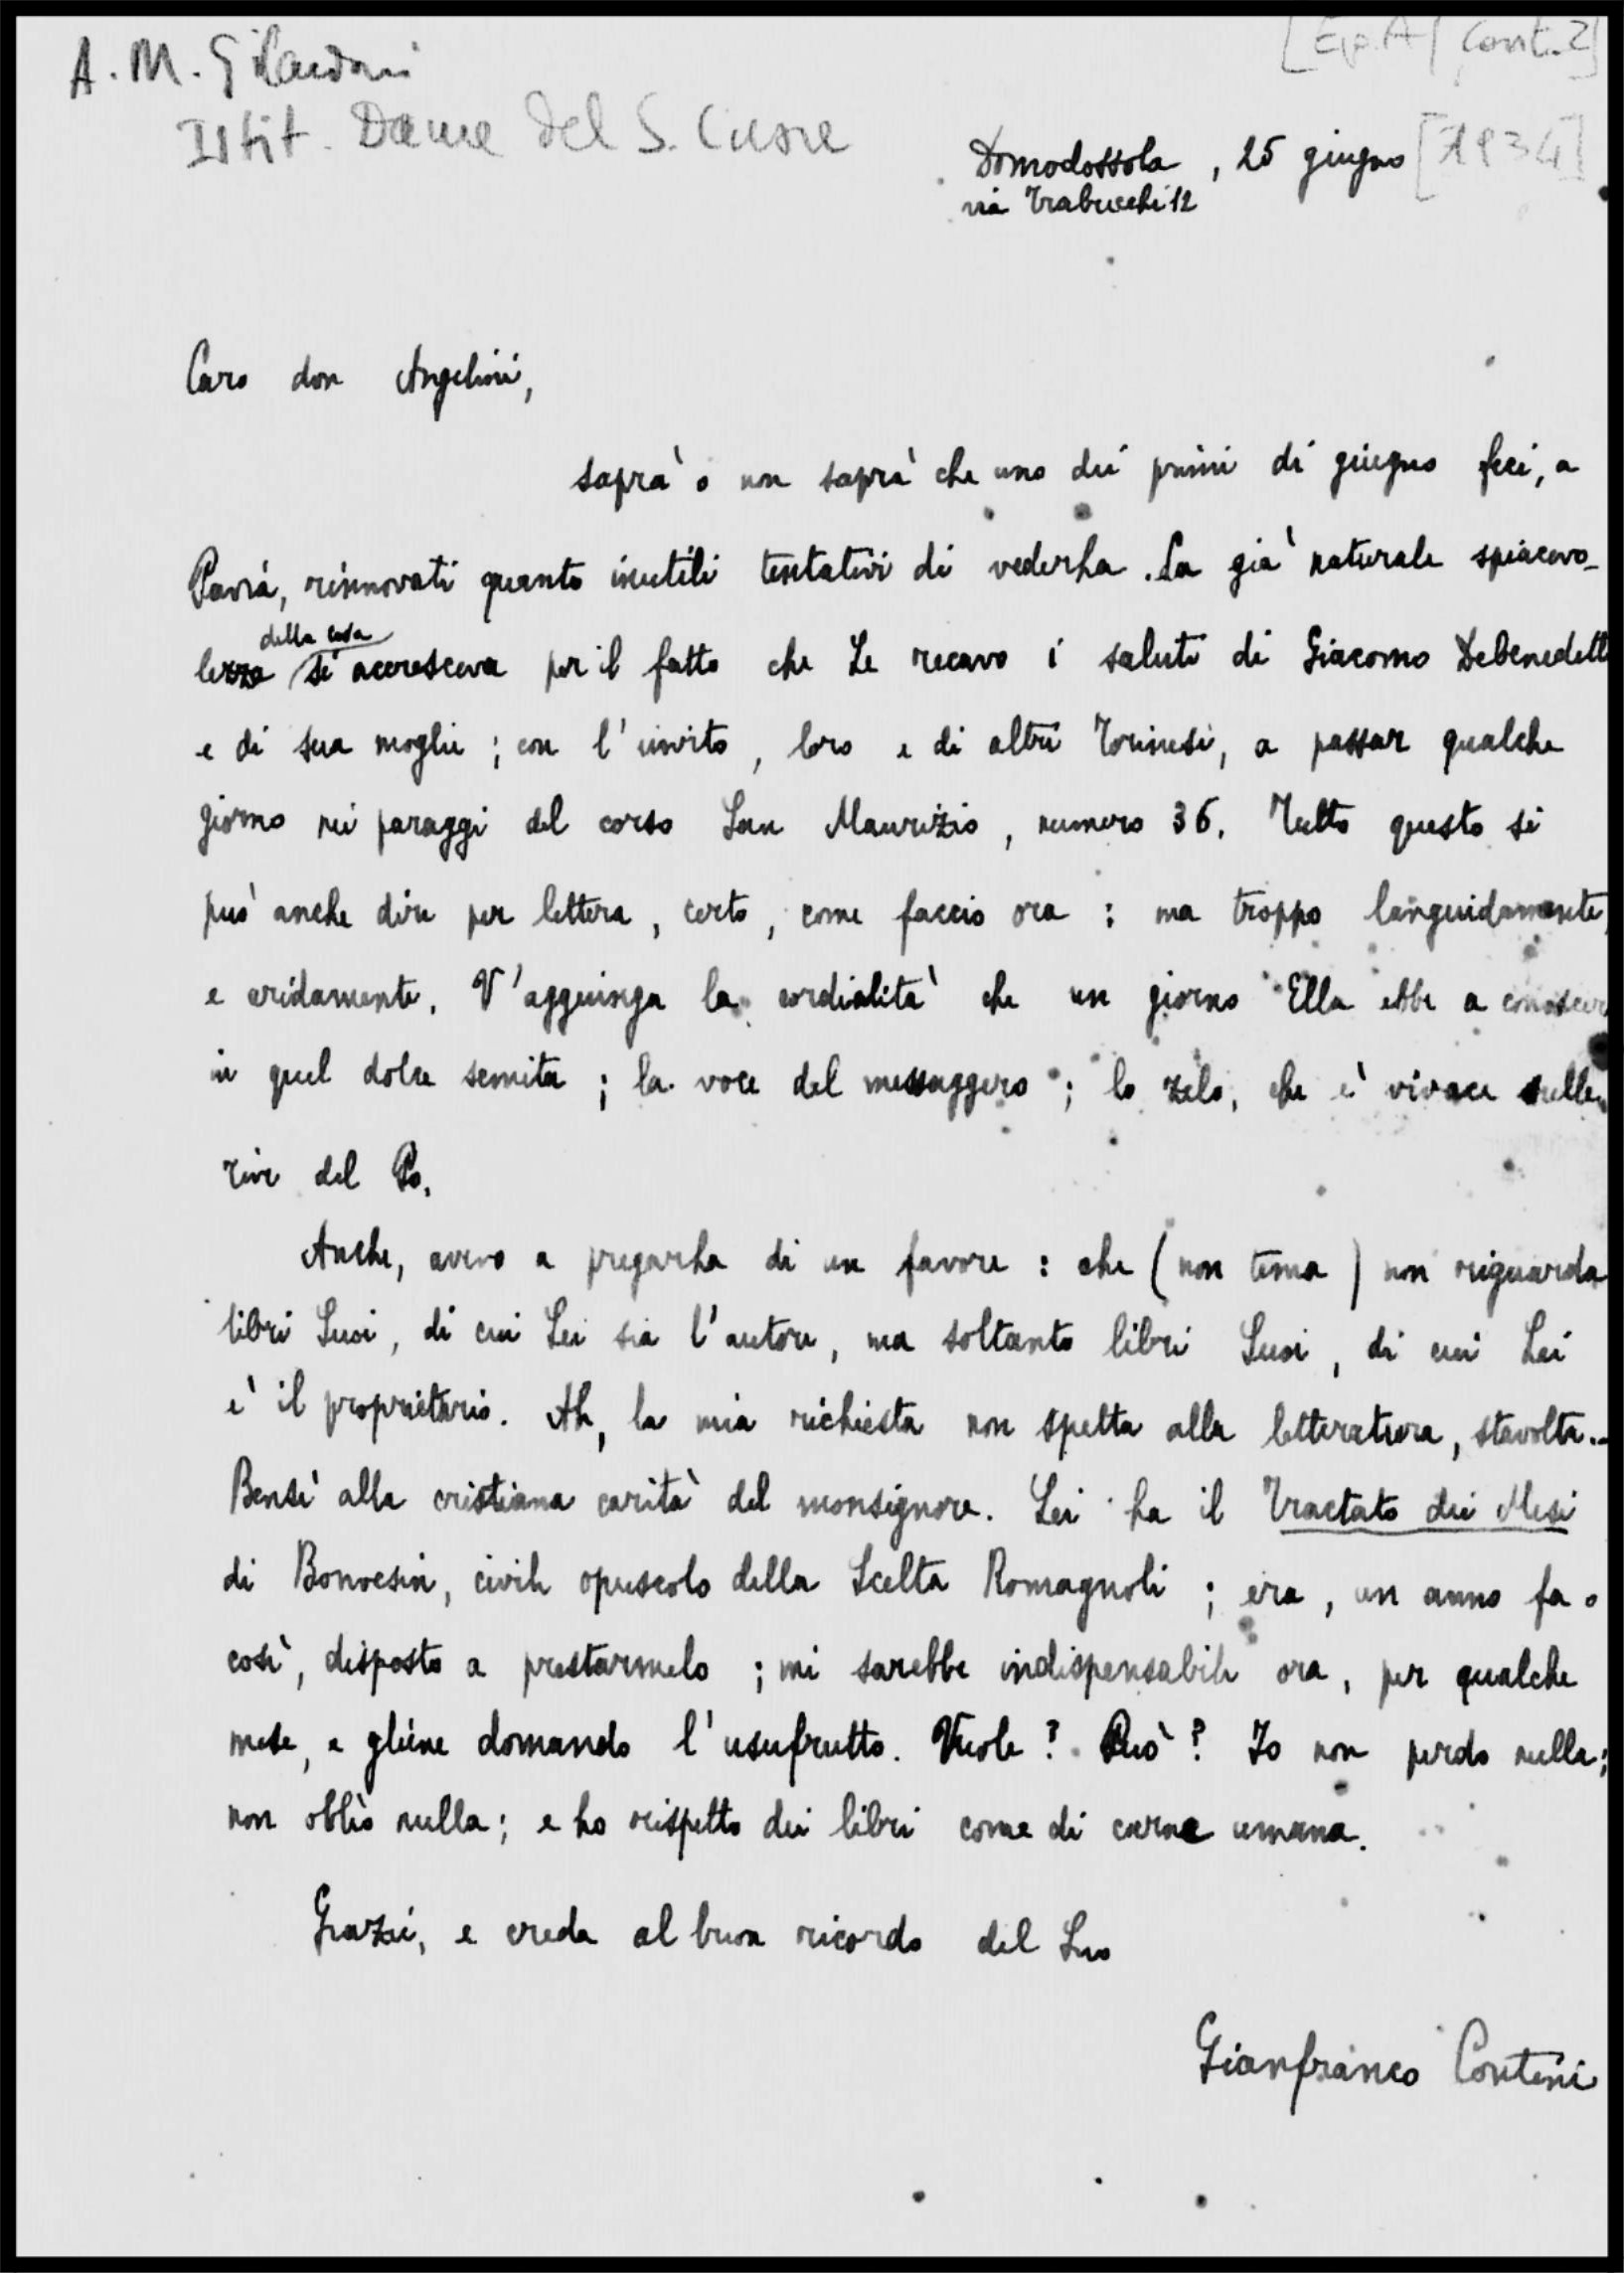 A. M. Gilardoni
[Ep. A | Cont. 2]
Istit. Dame del S. Cuore
Domodossola, 25 giugno [1934]
via Trabucchi 12
Caro don Angelini,
saprà o non saprà che uno dei primi di giugno feci, a
Pavia, rinnovati quanto inutili tentativi di vederLa. La già naturale spiacevo-
della cosa
lezza si accresceva per il fatto che Le recavo i saluti di Giacomo Debenedett
e di sua moglie; con l'invito, loro e di altri Torinesi, a passar qualche
giorno nei paraggi del corso San Maurizio, numero 36. Tutto questo si
può anche dire per lettera, certo, come faccio ora: ma troppo languidamente,
e aridamente. V'aggiunga la cordialità che un giorno Ella ebbe a conoscer
in quel dolce semita; la voce del messaggero; lo zelo, che è vivace sulle
rive del Po.
Anche, avevo a pregarLa di un favore: che (non tema) non riguarda
libri Suoi, di cui Lei sia l'autore, ma soltanto libri Suoi, di cui Lei
è il proprietario. Ah, la mia richiesta non spetta alla letteratura, stavolta...
Bensì alla cristiana carità del monsignore. Lei ha il Tractato dei Mesi
di Bonvesin, civile opuscolo della Scelta Romagnoli; era, un anno fa o
così, disposto a prestarmelo; mi sarebbe indispensabile ora, per qualche
mese, e gliene domando l'usufrutto. Vuole? Può? Io non perdo nulla;
non oblìo nulla; e ho rispetto dei libri come di carne umana.
Grazie, e creda al buon ricordo del Suo
Gianfranco Contini